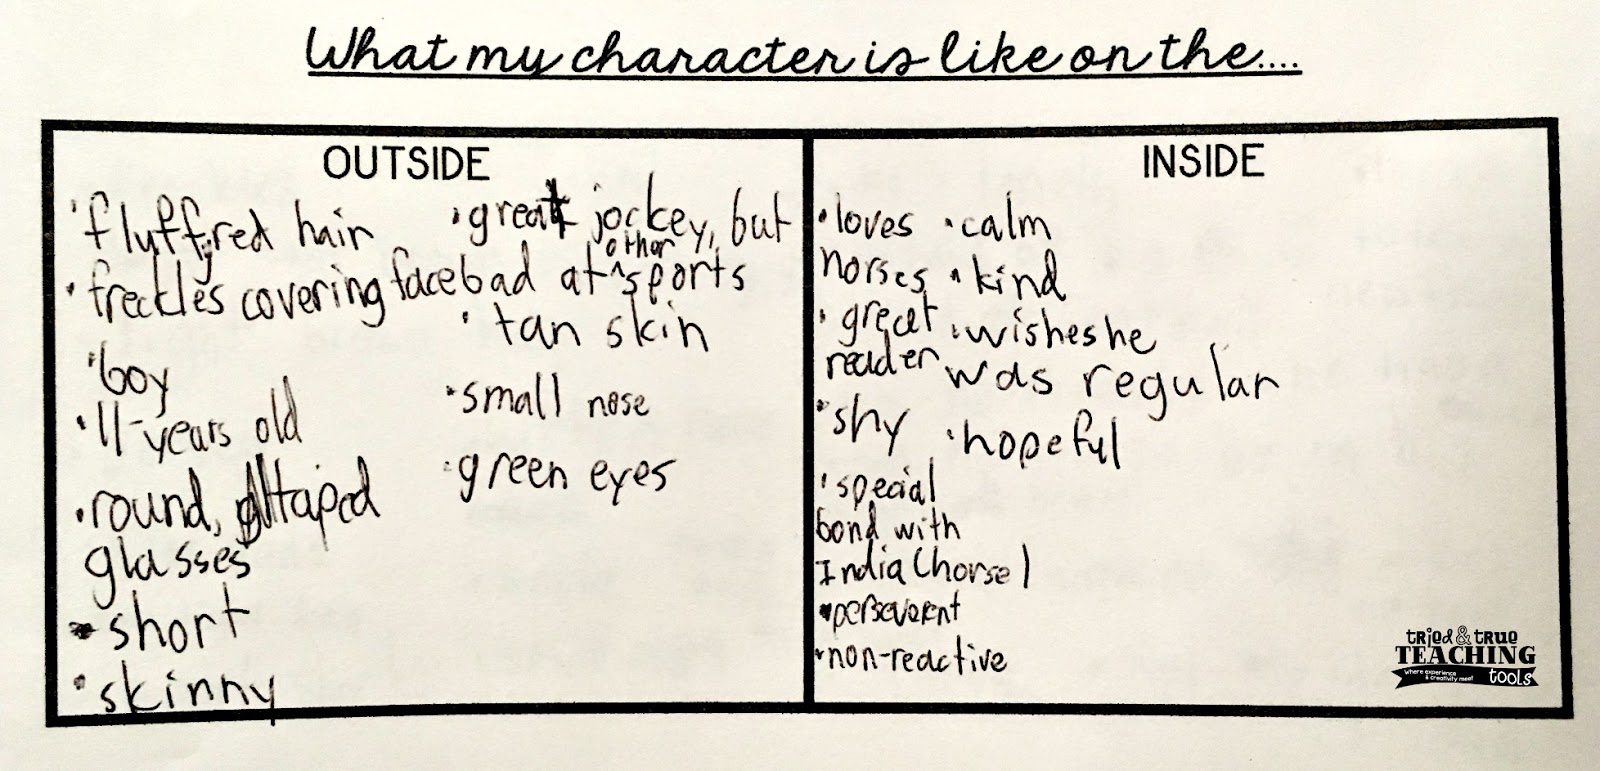 What my character is like on the....
OUTSIDE
• fluffy, red hair
• freckles covering face
• boy
• 11-years old
• round, taped
glasses
• short
• skinny
• great jockey, but
bad at ^other sports
• tan skin
• small nose
• green eyes
INSIDE
• loves
horses
• great
reader
• shy
• special
bond with
India (horse)
• perseverent
• non-reactive
• calm
• kind
• wishes he
was regular
• hopeful
tried & true
TEACHING
where experience
& creativity meet
tools